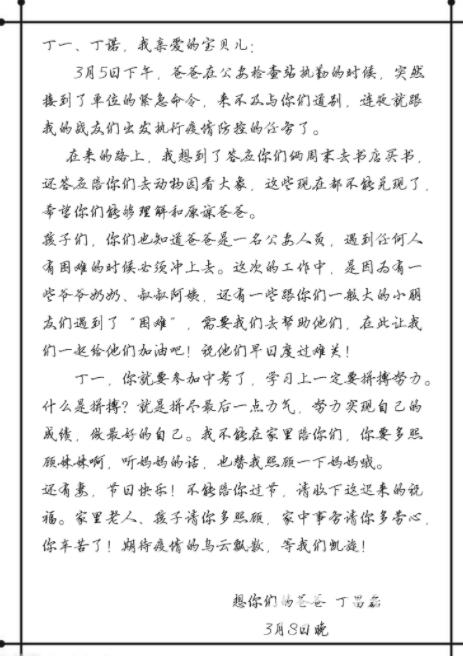 丁一、丁诺，我亲爱的宝贝儿：
3月5日下午，爸爸在公安检查站执勤的时候，突然
接到了单位的紧急命令，来不及与你们道别，连夜就跟
我的战友们出发执行疫情防控的任务了。
在来的路上，我想到了答应你们俩周末去书店买书，
还答应陪你们去动物园看大象，这些现在都不能兑现了，
希望你们能够理解和原谅爸爸。
孩子们，你们也知道爸爸是一名公安人员，遇到任何人
有困难的时候必须冲上去。这次的工作中，是因为有一
些爷爷奶奶、叔叔阿姨，还有一些跟你们一般大的小朋
友们遇到了“困难”，需要我们去帮助他们，在此让我
们一起给他们加油吧！祝他们早日度过难关！
丁一，你就要参加中考了，学习上一定要拼搏努力。
什么是拼搏？就是拼尽最后一点力气，努力实现自己的
成绩，做最好的自己。我不能在家里陪你们，你要多照
顾妹妹啊，听妈妈的话，也替我照顾一下妈妈哦。
还有妻，节日快乐！不能陪你过节，请收下这迟来的祝
福。家里老人、孩子请你多照顾，家中事务请你多劳心，
你辛苦了！期待疫情的乌云飘散，等我们凯旋！
想你们的爸爸 丁昌磊
3月8日晚